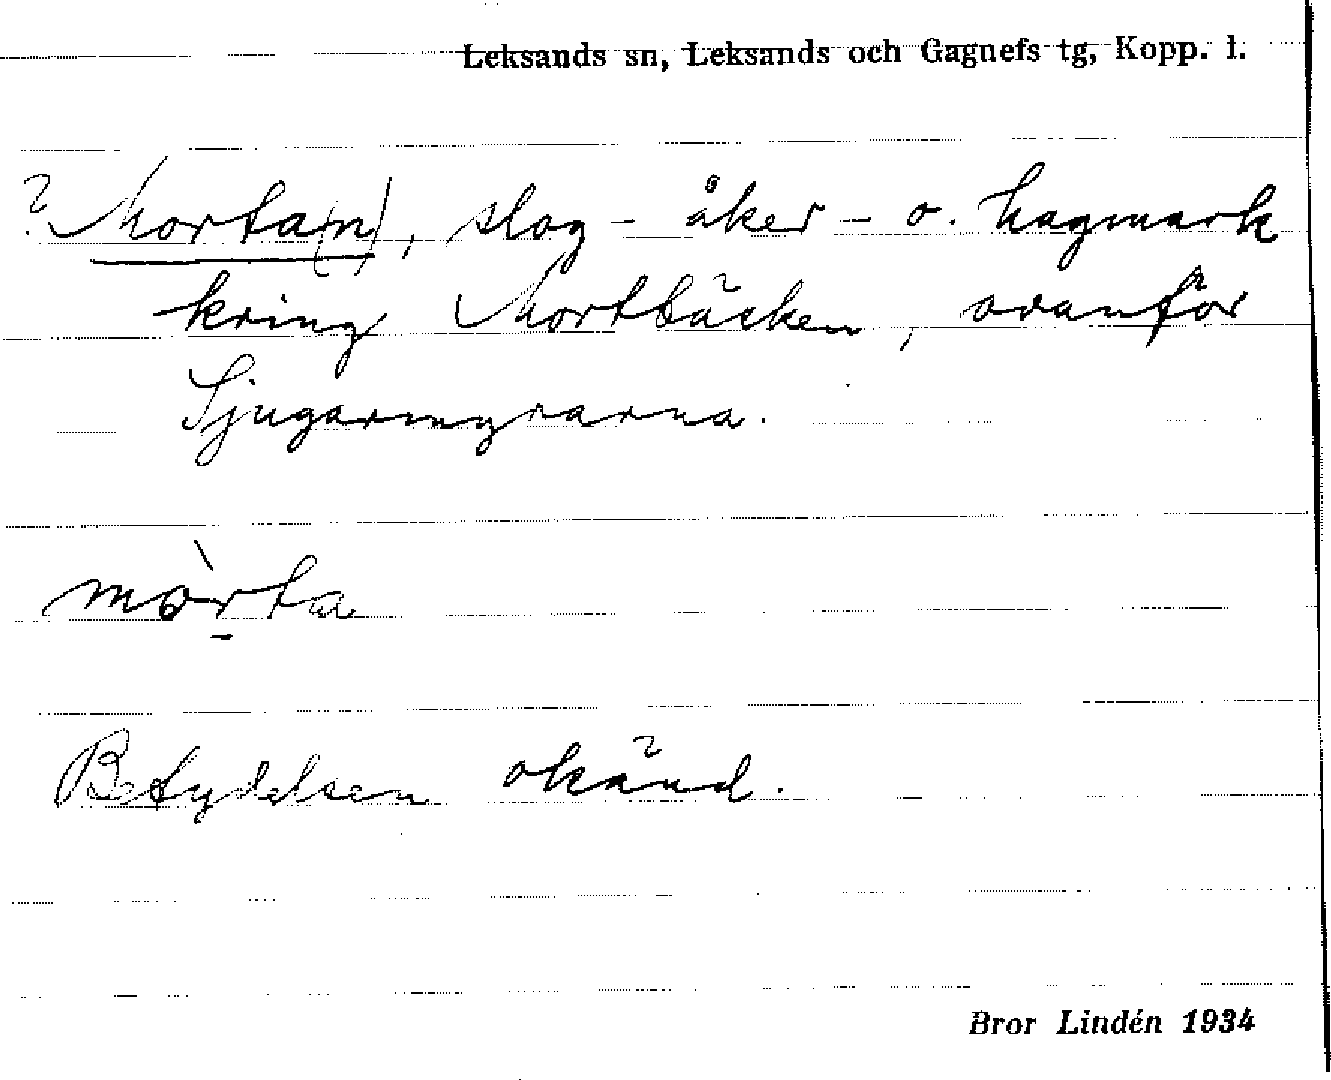 Leksands sn, Leksands och Gagnefs tg, Kopp. l.
? Morta(n), slog- åker- o. hagmark
kring Mortbäcken, ovanför
Sjugaremyrarna.
mòrta
Betydelsen okänd.
Bror Lindén 1934